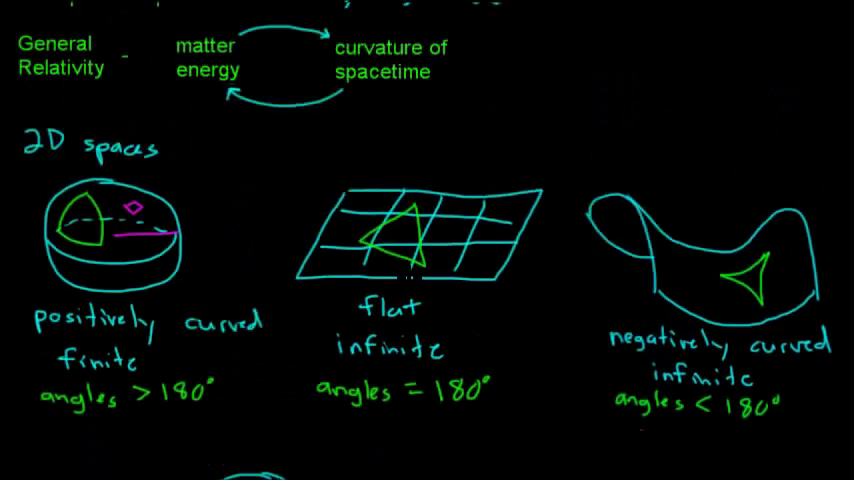 General Relativity - matter energy curvature of spacetime
2D spaces
positively curved
finite
angles > 180°
flat
infinite
angles = 180°
negatively curved
infinite
angles < 180°